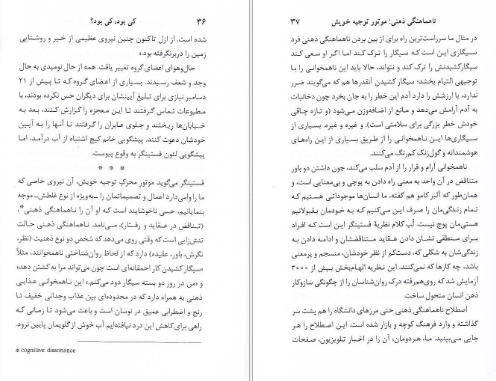 ۳۶ کی بود، کی بود؟
است. از ازل تاکنون چنین نیروی عظیمی از خیر و روشنایی
زمین را دربرنگرفته بود.»
حال‌وهوای اعضای گروه تغییر یافت. همه از حال نومیدی به حال
وجد و شعف رسیدند. بسیاری از اعضای گروه که پیش از ۲۱
دسامبر نیازی برای تبلیغ آیینشان برای دیگران حس نکرده بودند، به
مطبوعات تماس گرفتند تا این معجزه را گزارش کنند، بعد به
خیابان‌ها ریختند و جلوی عابران را گرفتند تا آنها را به آیین
خودشان دعوت کنند. پیشگویی خانم کیچ اشتباه از آب درآمد، اما
پیشگویی لئون فستینگر به وقوع پیوست.
* * *
فستینگر می‌گوید موتور محرک توجیه خویش، آن نیروی خاصی که
ما را وامی‌دارد اعمال و تصمیماتمان ـ به‌ویژه از نوع غلطش ـ موجه
بنمایانیم، حسی ناخوشایند است که او آن را «ناهماهنگی ذهنی*،
(تناقض در عقاید و رفتار)، می‌نامد. ناهماهنگی ذهنی حالت
تنش‌زایی است که وقتی روی می‌دهد که شخص دو نوع ذهنیت (نظر،
نگرش، باور، عقیده) دارد که از لحاظ روان‌شناختی ناهمخوانند، مثلاً
«سیگار کشیدن کار احمقانه‌ای است چون می‌تواند مرا به کشتن دهد»
و «من در روز دو بسته سیگار دود می‌کنم.» این ناهمخوانی عذابی
ذهنی به همراه دارد که در محدوده‌ای بین عذاب وجدانی خفیف تا
رنج و اضطرابی عمیق در نوسان است و باعث می‌شود تا زمانی که
راهی برای کاهش این درد نیافته‌ایم آب خوش از گلویمان پایین نرود.
* cognitive dissonance
ناهماهنگی ذهنی: موتور توجیه خویش ۳۷
در مثال ما سرراست‌ترین راه برای از بین بردن ناهماهنگی ذهنی فرد
سیگاری این است که سیگار را ترک کند اما اگر او سعی کند
سیگارکشیدنش را ترک کند و نتواند، حالا باید این ناهمخوانی را با
توجیهی التیام بخشد؛ سیگار کشیدن آنقدرها هم که می‌گویند ضرر
ندارد، یا ارزشش را دارد آدم این خطر را به جان بخرد چون دخانیات
به آدم آرامش می‌دهد و مانع از اضافه‌وزن می‌شود (و تازه چاقی
خودش خطر بزرگی برای سلامتی است)، و غیره و غیره. بسیاری از
سیگاری‌ها این ناهمخوانی را از طریق بسیاری از این راه‌های
هوشمندانه و گول‌زنک کم‌رنگ می‌کنند.
ناهمخوانی آرام و قرار را از آدم سلب می‌کند، چون داشتن دو باور
متناقض در آن واحد به معنی راه دادن به پوچی و بی‌معنایی است، و
همان‌طور که آلبر کامو هم گفته، ما انسان‌ها موجوداتی هستیم که
تمام زندگی‌مان را صرف این می‌کنیم که به خودمان بقبولانیم
هستی‌مان پوچ نیست. لُب کلام نظریهٔ فستینگر این است که افراد
برای منطقی نشان دادن عقاید متناقضشان و ادامه دادن به
زندگی‌شان به شکلی که، دست‌کم از نظر خودشان، منسجم و پرمعنی
باشد، چه کارها که نمی‌کنند. این نظریه الهام‌بخش بیش از ۳۰۰۰
آزمایش شد که روی‌هم‌رفته درک روان‌شناسان را از چگونگی سازوکار
ذهن انسان متحول ساخت.
ناهماهنگی ذهنی حتی مرزهای دانشگاه را هم پشت سر
گذاشته و وارد فرهنگ کوچه و بازار شده است. این اصطلاح را هر
جایی می‌بینید. ما، هردومان، آن را در اخبار تلویزیون، صفحات